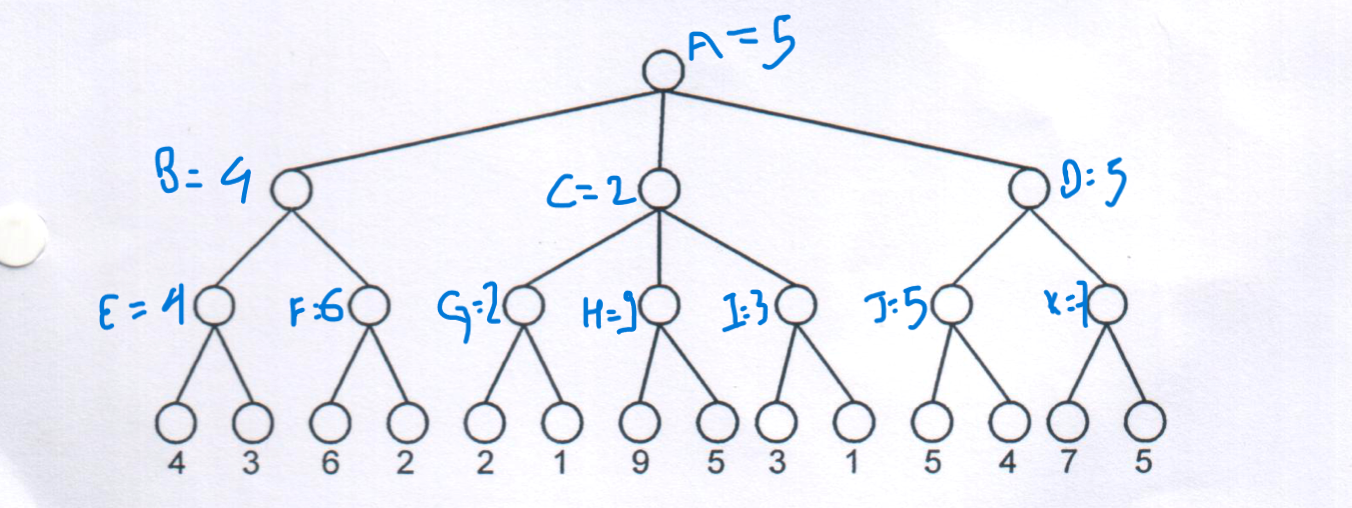 A=5
B=4
C=2
D:5
E=4
F:6
G:2
H=9
I:3
J:5
K=7
4 3 6 2 2 1 9 5 3 1 5 4 7 5